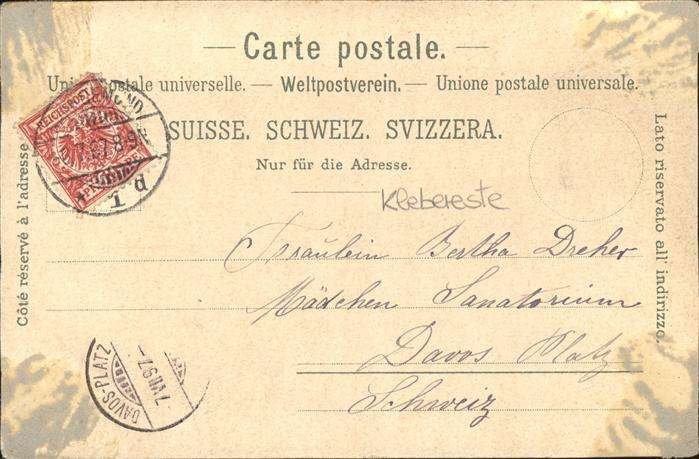 Carte postale.
Union postale universelle. — Weltpostverein. — Unione postale universale.
SUISSE. SCHWEIZ. SVIZZERA.
Nur für die Adresse.
Côté réservé à l'adresse
Lato riservato all' indirizzo.
REICHSPOST
PFENNIG
Klebereste
Fräulein Bertha Dreher
Mädchen Sanatorium
Davos Platz
Schweiz
DAVOS-PLATZ